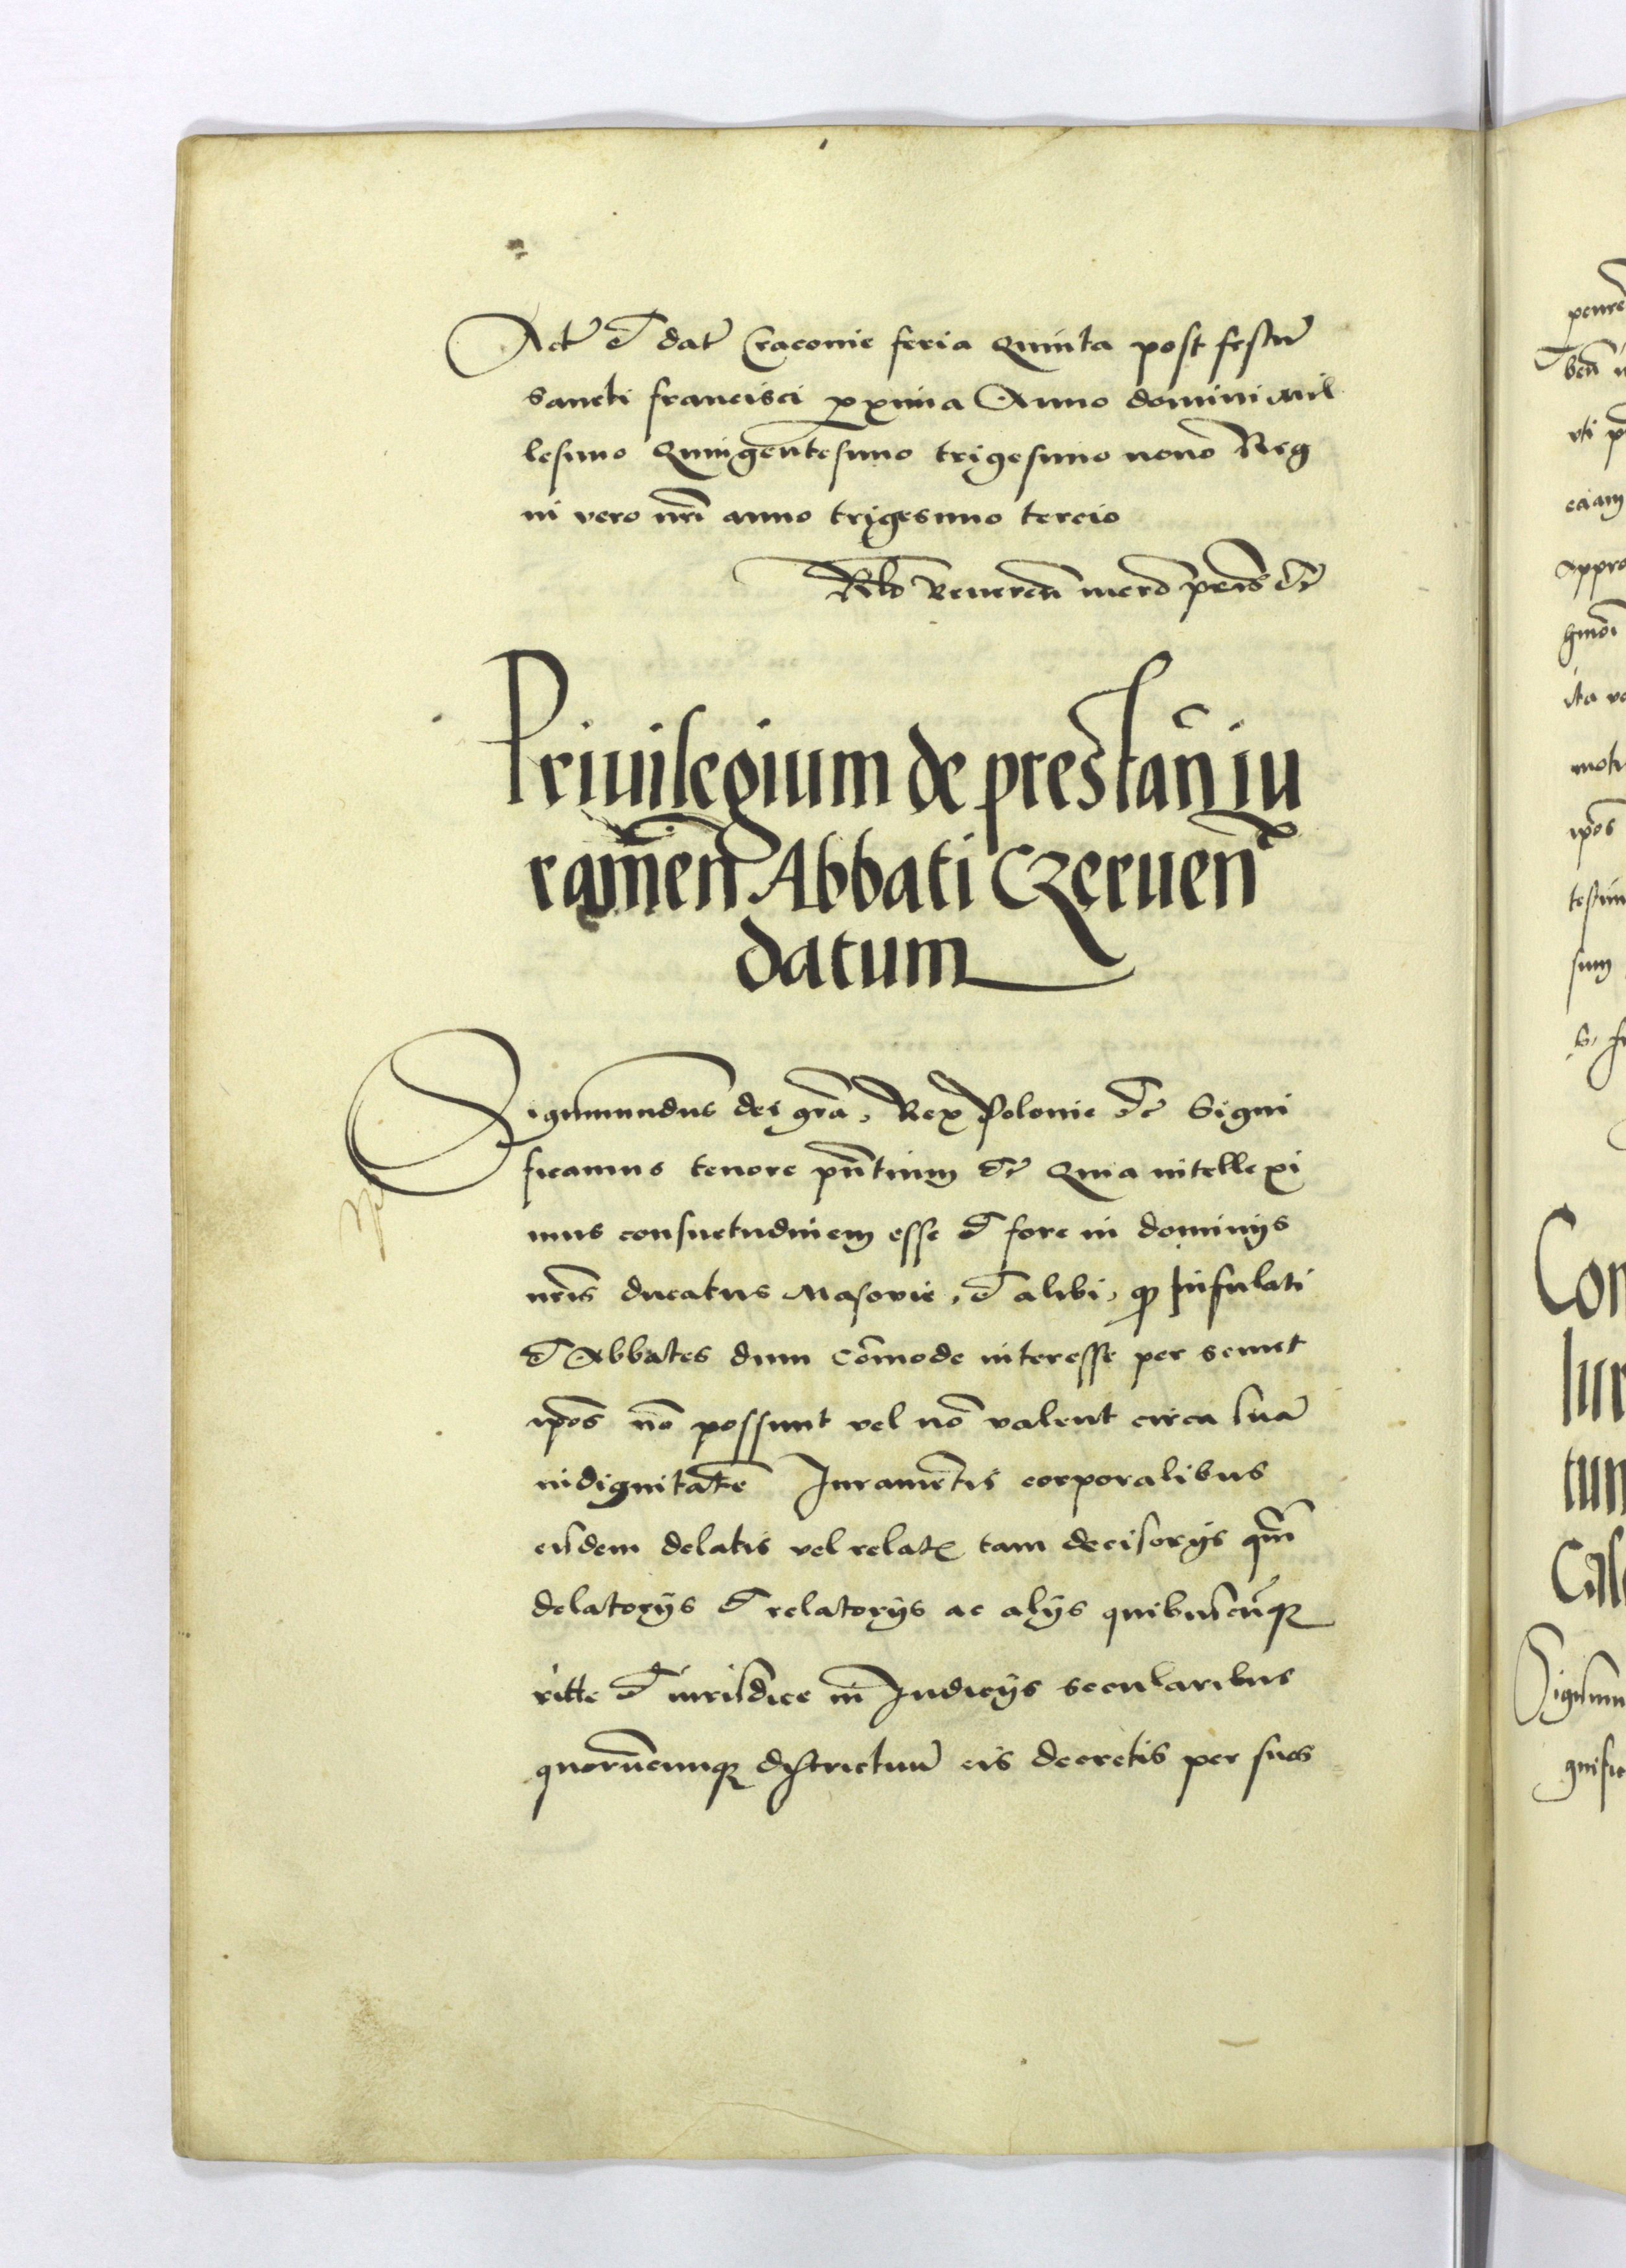 Act̃ et dat̃ Cracovie feria Quinta post festũ
sancti Francisci proxima Anno domini mil
lesimo Quingentesimo trigesimo nono Reg
ni vero nr̃i anno trigesimo tercio
Rlõ Reveren̄
Privilegium de prestan̄ iu
ramen̄ Abbati Czerven̄
datum
Sigismundus dei gr̃a Rex Polonie etc̃ Signi
ficamus tenore pñtium etc̃ Quia intellexi
mus consuetudinem esse et fore in dominijs
nr̃is ducatus Masovie, et alibi, qꝫ Infulati
et Abbates dum com̄ode interesse per semet
ip̄os nõ possunt vel nõ valent circa suã
indignitatẽ Iuramẽtis corporalibus
eisdem delatis vel relatꝭ tam decisorijs qm̃
delatorijs et relatorijs ac alijs quibuscũqꝫ
ritte et iuridice in Iudicijs secularibus
quorũcunqꝫ districtuũ eis decretis per suos
Con
iur
tun
Cas
Sigismu
gnifi
eciam
appro
ita ve
ip̄os